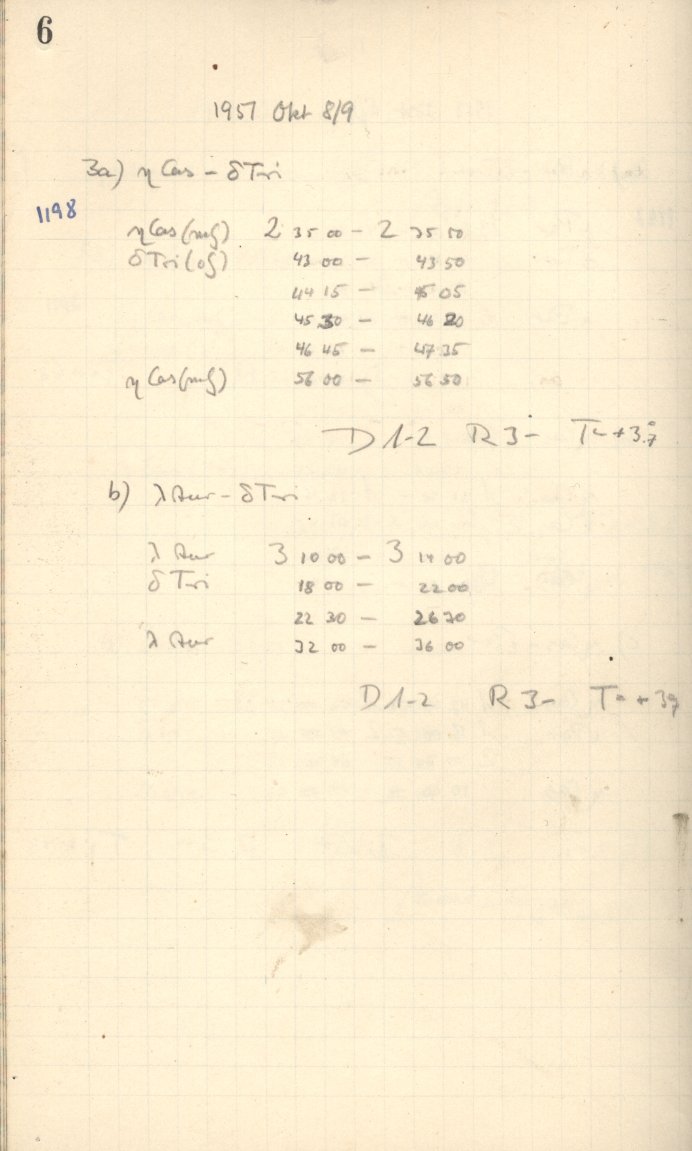 6
1957 Okt 8/9
3a) η Cas – δ Tri
1198
η Cas (mf) 2 35 00 – 2 35 50
δ Tri (of) 43 00 – 43 50
44 15 – 45 05
45 30 – 46 20
46 45 – 47 35
η Cas (mf) 56 00 – 56 50
D 1-2 R 3- T = +3.°7
b) λ Aur – δ Tri
λ Aur 3 10 00 – 3 14 00
δ Tri 18 00 – 22 00
22 30 – 26 30
λ Aur 32 00 – 36 00
D 1-2 R 3- T = +3.°7